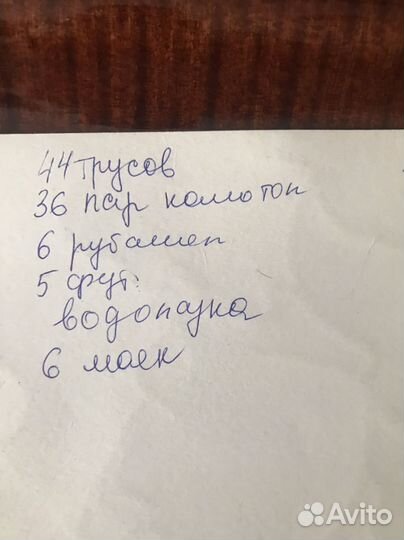 44 трусов
36 пар колготок
6 рубашек
5 фут.
водолазка
6 маек
Avito